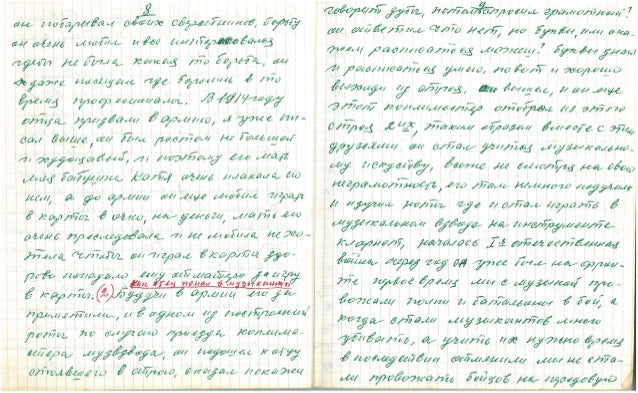 8
он поборывал своих сверстников, борьбу
он очень любил и все интересовался
где бы не была какая то борьба, он
даже посещал где боролись в то
время профессионалы. В 1914 году
отца призвали в армию, я уже пи-
сал выше, он был ростом не большой
и худощавый, и поэтому его мать
моя бабушка Катя очень плакала по
нем, а до армии он еще любил играть
в карты в очко, на деньги, мать его
очень преследовала и не любила не хо-
тела чтобы он играл в карты здо-
рово попадало ему от матери за игру
как отец попал в музыканты
в карты. (2) Будучи в армии его за
приметили, и в одном из построений
роты по случаю приезда капельме-
йстера музвзвода, он подошел к отцу
стоявшего в строю, сказал покажи
9
говорит зубы, потом спросил грамотный?
он ответил что нет, но буквы, или ска-
жем расписатся можеш? буквы знаю
и расписатся умею, ну вот и хорошо
выходи из строя. он вышел, и он еще
этот капельмейстер отобрал из этого
строя 2их, таким образом вместе с этими
друзьями он стал учится музыкально-
му искуству, все же не смотря на свою
неграмотность, его там немного подучили
и изучил ноты где и стал играть в
музыкальном взводе на инструменте
кларнет, началась I-я отечественная
война через год он уже был на фрон-
те первое время мы с музыкой про-
вожали полки и батальоны в бой, а
когда стали музыкантов много
убивать, а учить их нужно время
в последствии отменили мы не ста-
ли провожать бойцов на передовую